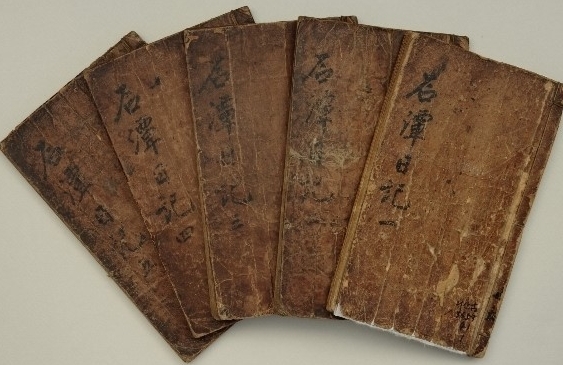 石潭日記一
石潭日記二
石潭日記三
石潭日記四
石潭日記五